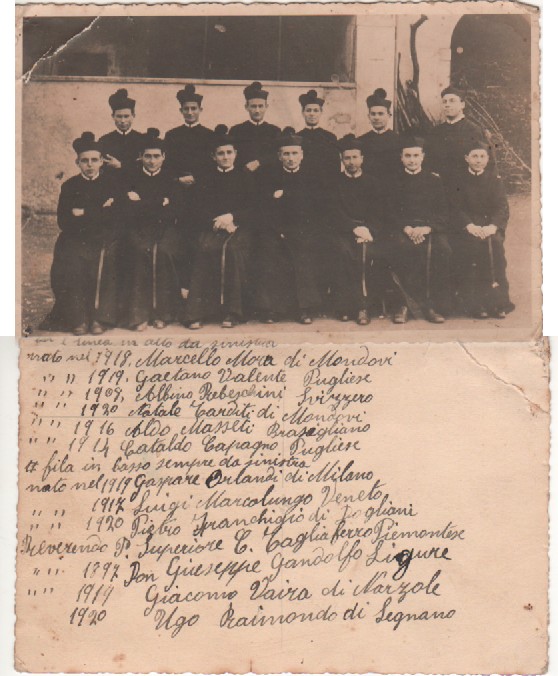 linea in alto da sinistra
nato nel 1918, Marcello Mora di Mondovi
" " 1919, Gaetano Valente Pugliese
" " 1908, Albino Rebeschini Svizzero
" " 1920 Natale Carditi di Mondovi
" " 1916 Aldo Masseti Brasigliano
" " 1914 Cataldo Capagno Pugliese
II fila in basso sempre da sinistra
nato nel 1919 Gaspare Orlandi di Milano
" " 1917 Luigi Marcolungo Veneto
" " 1920 Pietro Franchigio di Dogliani
Reverendo P. Superiore C. Tagliaferro Piemontese
" " 1897 Don Giuseppe Gandolfo Ligure
" " 1919 Giacomo Vaira di Narzole
1920 Ugo Raimondo di Legnano